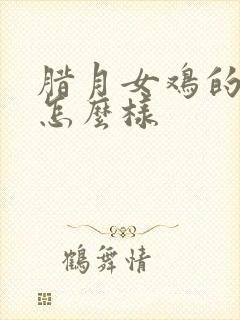 腊月女鸡的
怎麼樣
鶴舞情